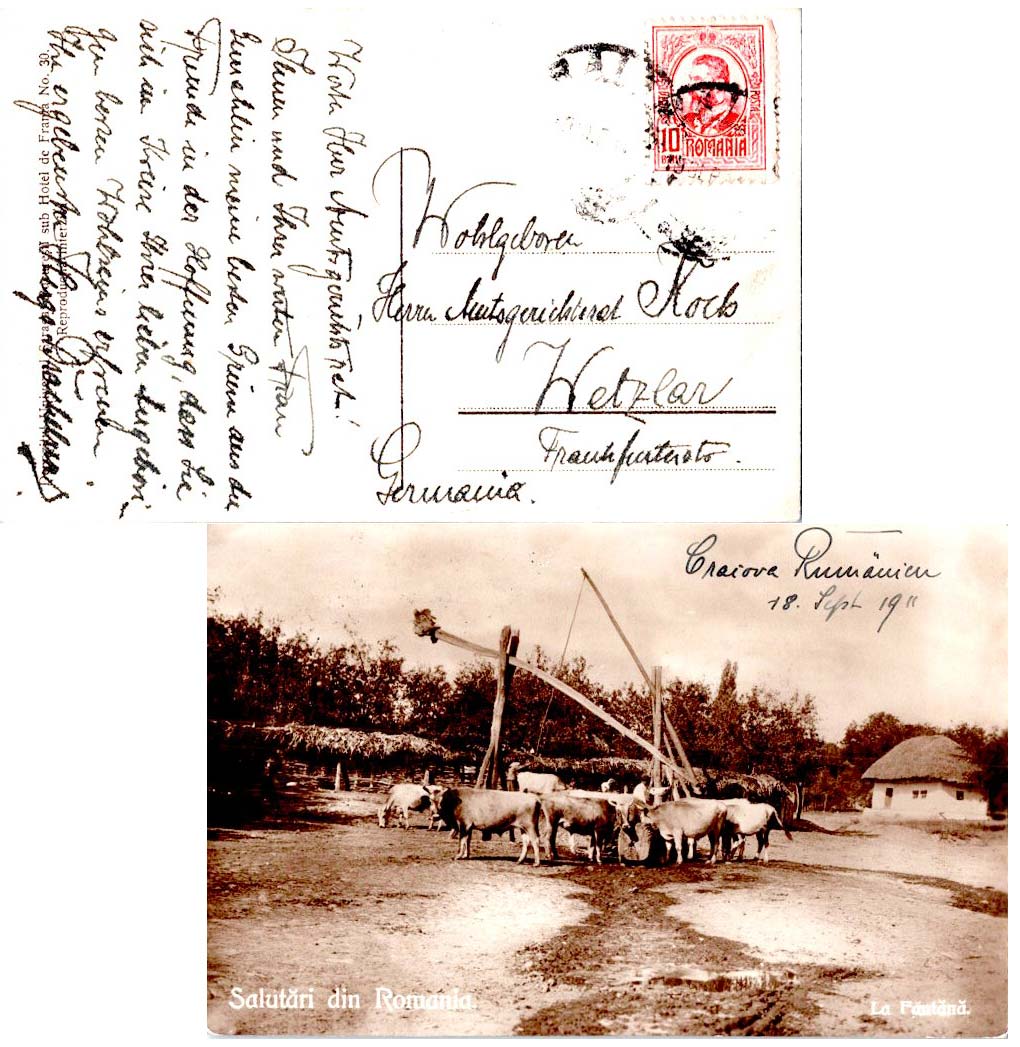 Herr Amtsgerichtsrat!
Ihnen und Ihrer werten Frau
meine besten Grüsse aus der
Fremde in der Hoffnung, dass Sie
sich im Kreise Ihrer lieben Angehöri-
gen besten Wohlseins erfreuen.
Ihr ergebenster
sub Hotel de Franța No. 30.
ROMANIA
10
BANI
Wohlgeboren
Herrn Amtsgerichtsrat Koch
Wetzlar
Frankfurterstr.
Germania.
Craiova Rumänien
18. Sept 1911
Salutări din Romania.
La Fântână.